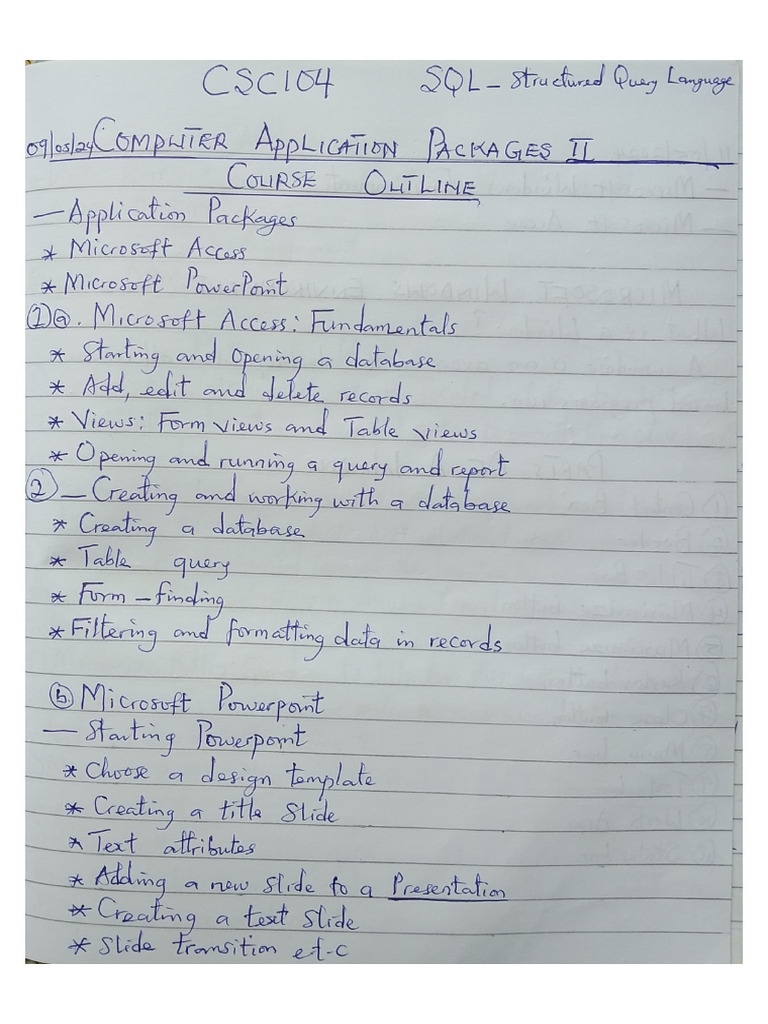 CSC104 SQL - Structured Query Language
09/05/24 COMPUTER APPLICATION PACKAGES II
COURSE OUTLINE
— Application Packages
* Microsoft Access
* Microsoft PowerPoint
① ⓐ. Microsoft Access: Fundamentals
* Starting and opening a database
* Add, edit and delete records
* Views: Form views and Table views
* Opening and running a query and report
② — Creating and working with a database
* Creating a database
* Table query
* Form - finding
* Filtering and formatting data in records
ⓑ Microsoft Powerpoint
— Starting Powerpoint
* Choose a design template
* Creating a title slide
* Text attributes
* Adding a new slide to a Presentation
* Creating a text slide
* Slide transition et-c